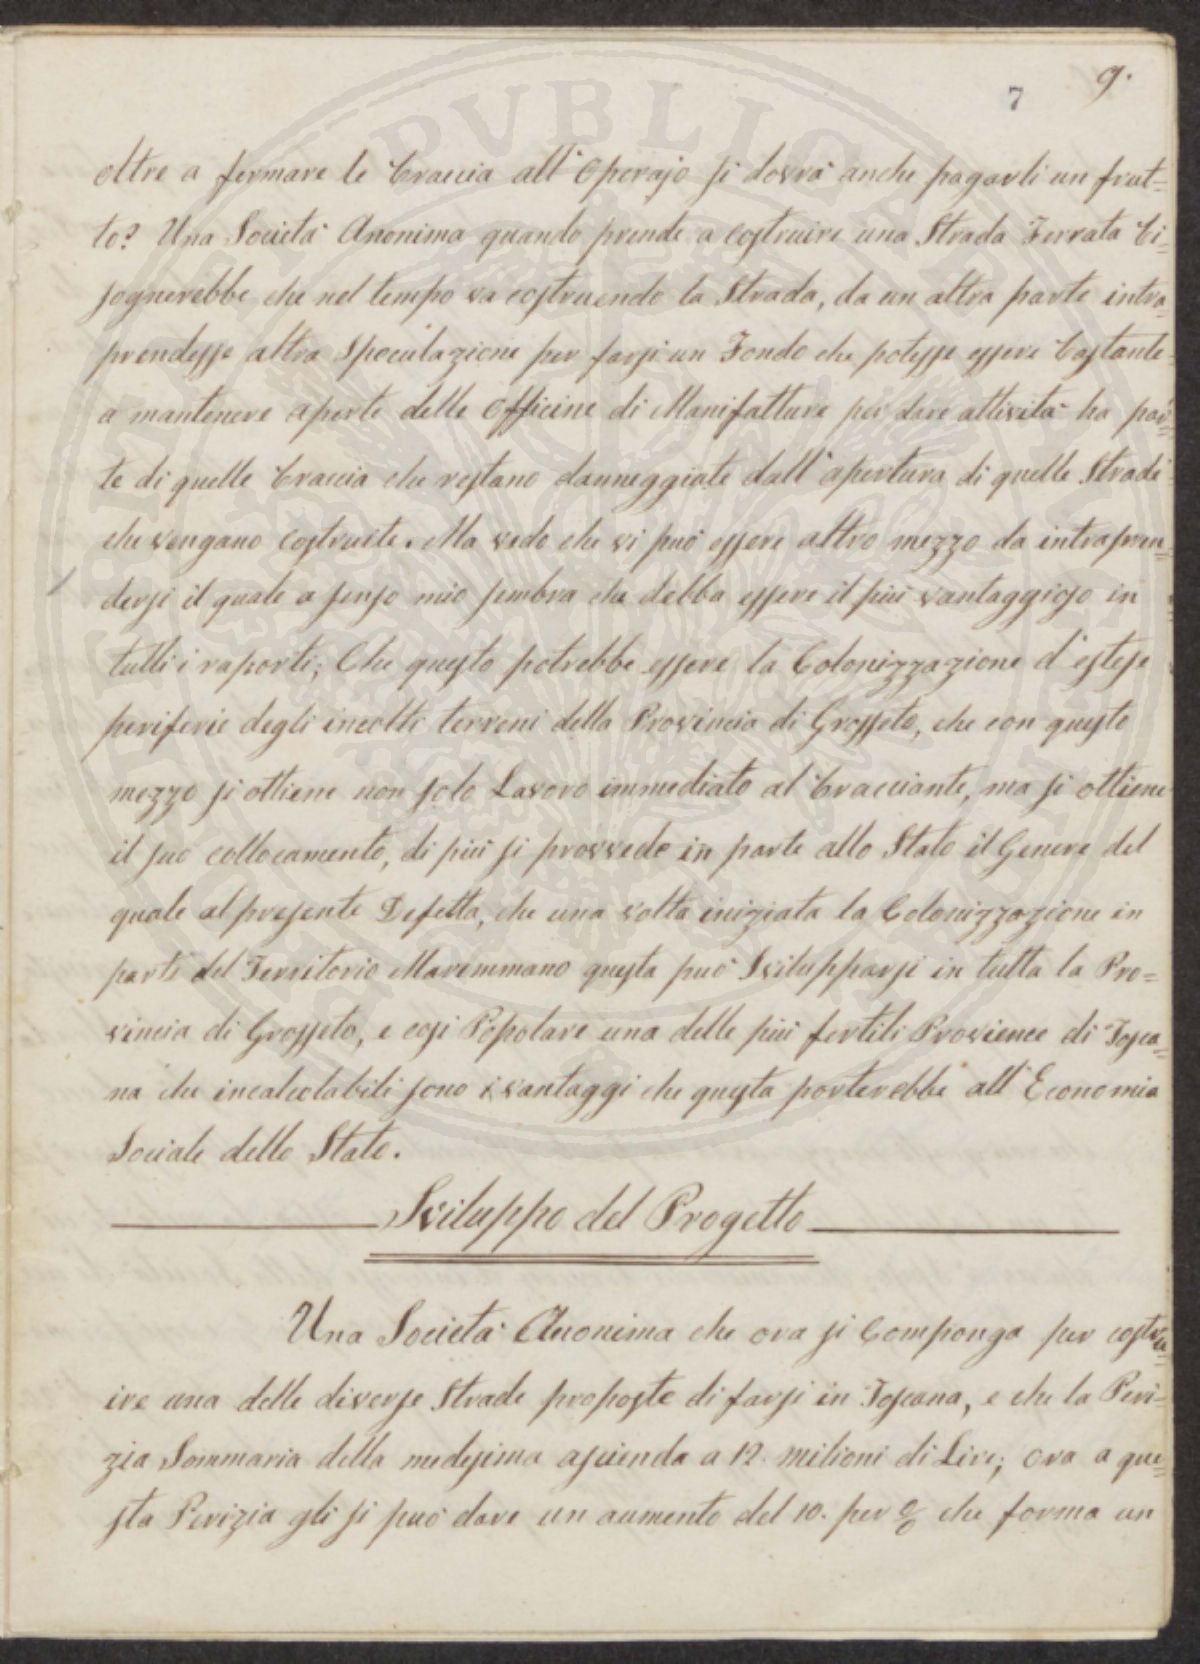 7 9.
oltre a fermare le braccia all'Operajo si dovrà anche pagarli un frut=
to? Una Società Anonima quando prende a costruire una Strada Ferrata bi=
sognerebbe, che nel tempo va costruendo la Strada, da un altra parte intra=
prendesse altra Speculazione per farsi un Fondo che potesse essere bastante
a mantenere aperte delle Officine di Manifatture per dare attività ha par=
te di quelle braccia che restano danneggiate dall'apertura di quelle Strade
che vengano costruite. Ma vedo che vi può essere altro mezzo da intrapren=
dersi il quale a senso mio sembra che debba essere il più vantaggioso in
tutti i raporti; Che questo potrebbe essere la Colonizzazione d'estese
periferie degli incolti terreni della Provincia di Grosseto, che con questo
mezzo si ottiene non solo Lavoro immediato al bracciante, ma si ottiene
il suo collocamento, di più si provvede in parte allo Stato il Genere del
quale al presente Difetta, che una volta iniziata la Colonizzazione in
parte del Territorio Maremmano questa può Svilupparsi in tutta la Pro=
vincia di Grosseto, e così Popolare una delle più fertili Provience di Tosca=
na che incalcolabili sono i vantaggi che questa porterebbe all'Economia
Sociale dello Stato.
Sviluppo del Progetto
Una Società Anonima che ora si Componga per costru=
ire una delle diverse Strade proposte di farsi in Toscana, e che la Peri=
zia Sommaria della medesima ascienda a 12. milioni di Lire; ora a que=
sta Perizia gli si può dare un aumento del 10. per % che forma un